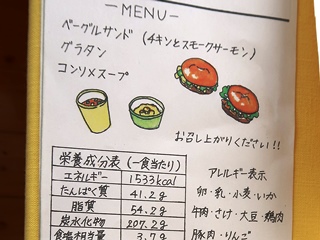 -MENU-
ベーグルサンド (チキンとスモークサーモン)
グラタン
コンソメスープ
お召し上がりください!!
栄養成分表 (一食当たり)
エネルギー 1533kcal
たんぱく質 41.2g
脂質 54.2g
炭水化物 207.2g
食塩相当量 3.7g
アレルギー表示
卵・乳・小麦・いか
牛肉・さけ・大豆・鶏肉
豚肉・りんご